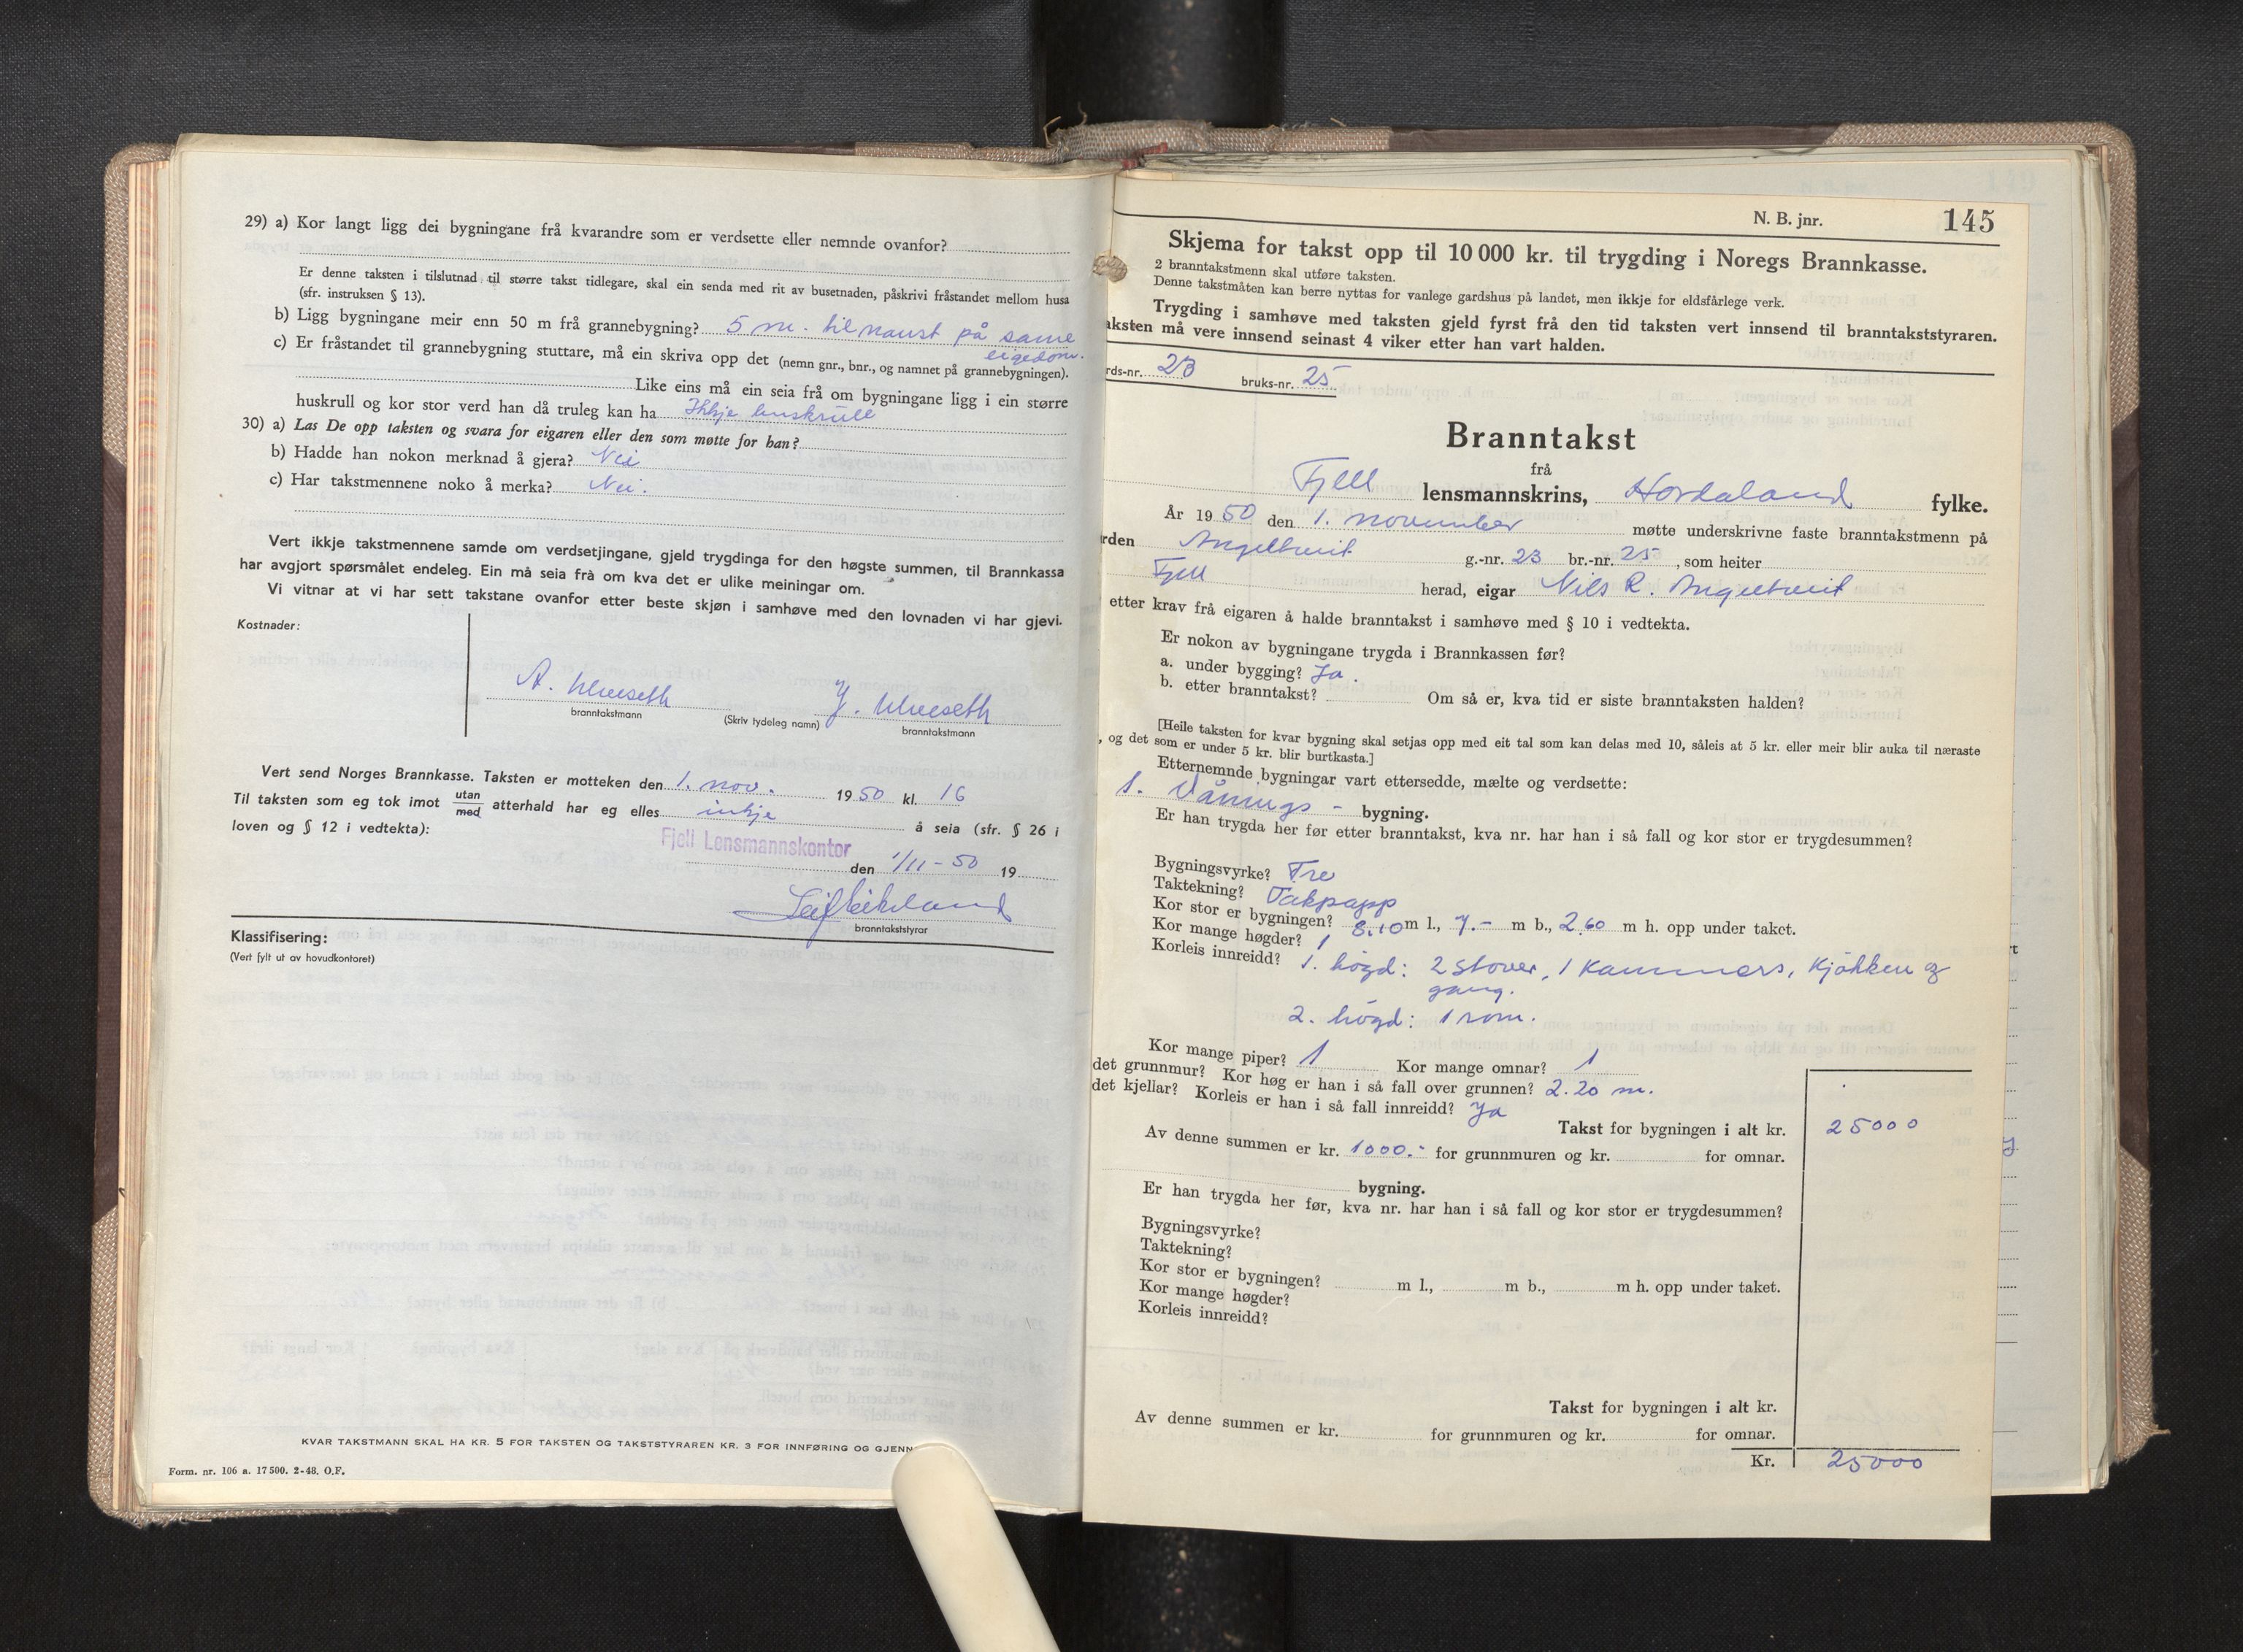 29) a) Kor langt ligg dei bygningane frå kvarandre som er verdsette eller nemnde ovanfor?
Er denne taksten i tilslutnad til større takst tidlegare, skal ein senda med rit av busetnaden, påskrivi fråstandet mellom husa
(sfr. instruksen § 13).
b) Ligg bygningane meir enn 50 m frå grannebygning? 5 m. til naust på same
eigedom.
c) Er fråstandet til grannebygning stuttare, må ein skriva opp det (nemn gnr., bnr., og namnet på grannebygningen).
Like eins må ein seia frå om bygningane ligg i ein større
huskrull og kor stor verd han då truleg kan ha Ikkje huskrull
30) a) Las De opp taksten og svara for eigaren eller den som møtte for han?
b) Hadde han nokon merknad å gjera? Nei
c) Har takstmennene noko å merka? Nei.
Vert ikkje takstmennene samde om verdsetjingane, gjeld trygdinga for den høgste summen, til Brannkassa
har avgjort spørsmålet endeleg. Ein må seia frå om kva det er ulike meiningar om.
Vi vitnar at vi har sett takstane ovanfor etter beste skjøn i samhøve med den lovnaden vi har gjevi.
Kostnader:
A. Ulveseth J. Ulveseth
branntakstmann (Skriv tydeleg namn) branntakstmann
Vert send Norges Brannkasse. Taksten er motteken den 1. nov. 1950 kl. 16
Til taksten som eg tok imot utan/med atterhald har eg elles inkje å seia (sfr. § 26 i
loven og § 12 i vedtekta):
Fjell Lensmannskontor
den 1/11-50 19
branntakststyrar
Klassifisering:
(Vert fylt ut av hovudkontoret)
KVAR TAKSTMANN SKAL HA KR. 5 FOR TAKSTEN OG TAKSTSTYRAREN KR. 3 FOR INNFØRING OG GJENN
Form. nr. 106 a. 17500. 2-48. O.F.
N. B. jnr. 145
Skjema for takst opp til 10 000 kr. til trygding i Noregs Brannkasse.
2 branntakstmenn skal utføre taksten.
Denne takstmåten kan berre nyttas for vanlege gardshus på landet, men ikkje for eldsfårlege verk.
Trygding i samhøve med taksten gjeld fyrst frå den tid taksten vert innsend til branntakststyraren.
aksten må vere innsend seinast 4 viker etter han vart halden.
rds-nr. 23 bruks-nr. 25
Branntakst
frå
Fjell lensmannskrins, Hordaland fylke.
År 1950 den 1. november møtte underskrivne faste branntakstmenn på
rden Angeltveit g.-nr. 23 br.-nr. 25, som heiter
Fjell herad, eigar Nils R. Angeltveit
etter krav frå eigaren å halde branntakst i samhøve med § 10 i vedtekta.
Er nokon av bygningane trygda i Brannkassen før?
a. under bygging? Ja.
b. etter branntakst? Om så er, kva tid er siste branntaksten halden?
[Heile taksten for kvar bygning skal setjas opp med eit tal som kan delas med 10, såleis at 5 kr. eller meir blir auka til næraste
, og det som er under 5 kr. blir burtkasta.]
Etternemnde bygningar vart ettersedde, mælte og verdsette:
1. Vånings- bygning.
Er han trygda her før etter branntakst, kva nr. har han i så fall og kor stor er trygdesummen?
Bygningsvyrke? Tre
Taktekning? Takpapp
Kor stor er bygningen? 8.10 m l., 7.- m b., 2.60 m h. opp under taket.
Kor mange høgder? 1
Korleis innreidd? 1. høgd: 2 stover, 1 kammers, kjøkken og
gang.
2. høgd: 1 rom.
Kor mange piper? 1 Kor mange omnar? 1
det grunnmur? Kor høg er han i så fall over grunnen? 2.20 m.
det kjellar? Korleis er han i så fall innreidd? Ja
Takst for bygningen i alt kr. 25000
Av denne summen er kr. 1000.- for grunnmuren og kr. for omnar.
bygning.
Er han trygda her før, kva nr. har han i så fall og kor stor er trygdesummen?
Bygningsvyrke?
Taktekning?
Kor stor er bygningen? m l., m b., m h. opp under taket.
Kor mange høgder?
Korleis innreidd?
Takst for bygningen i alt kr.
Av denne summen er kr. for grunnmuren og kr. for omnar.
Kr. 25000